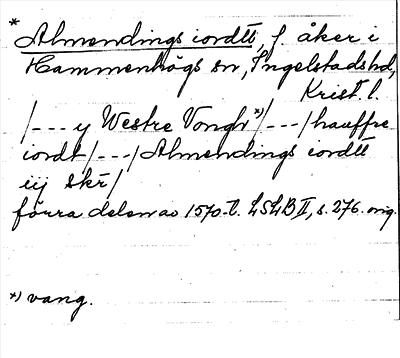 *
Almendings iordtt, f. åker i
Hammenhögs sn, Ingelstads hd,
Krist. l.
/--- y Westre Vongh *) /---/ hauffre
iordt /---/ Almendings iordtt
iij skr/
förra delen av 1570-t. LSLB II, s. 276. orig.
*) vang.